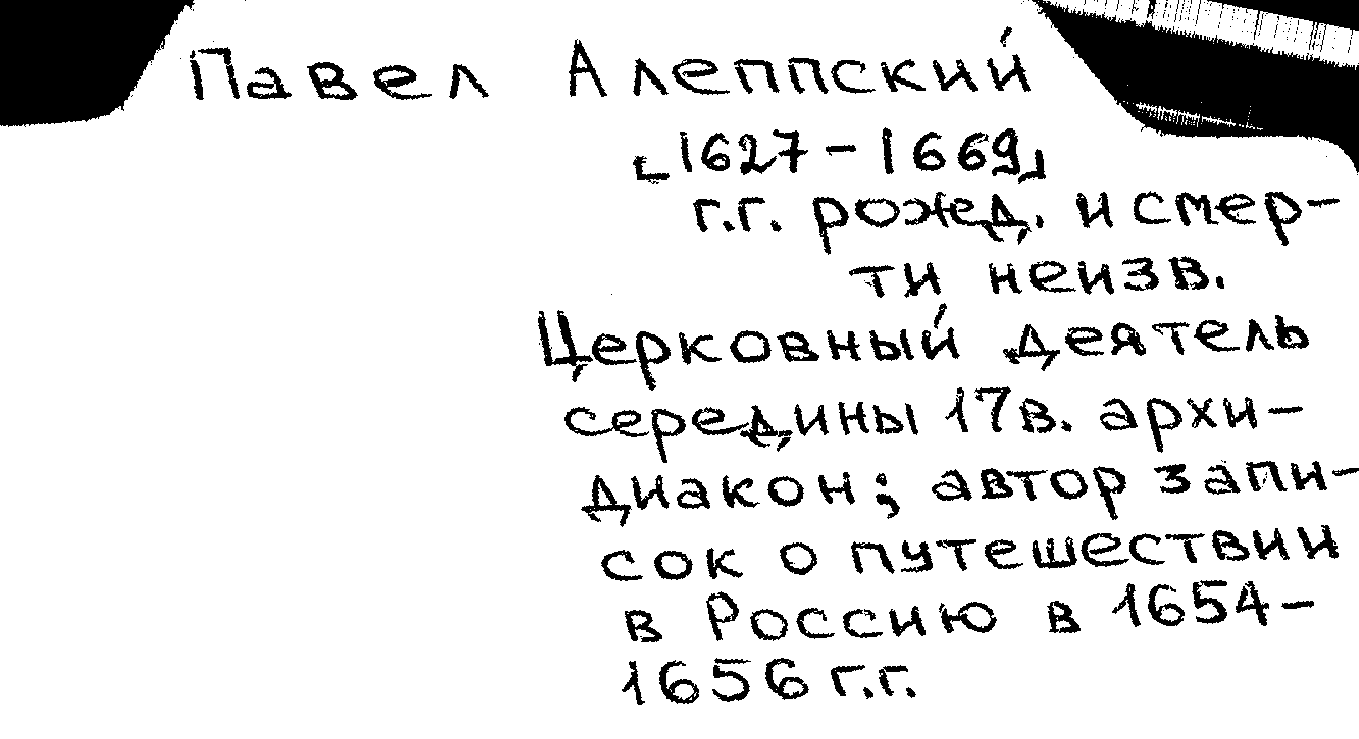 Павел Алеппский
[1627-1669]
г.г. рожд. и смер-
ти неизв.
Церковный деятель
середины 17в. архи-
диакон; автор запи-
сок о путешествии
в Россию в 1654-
1656 г.г.